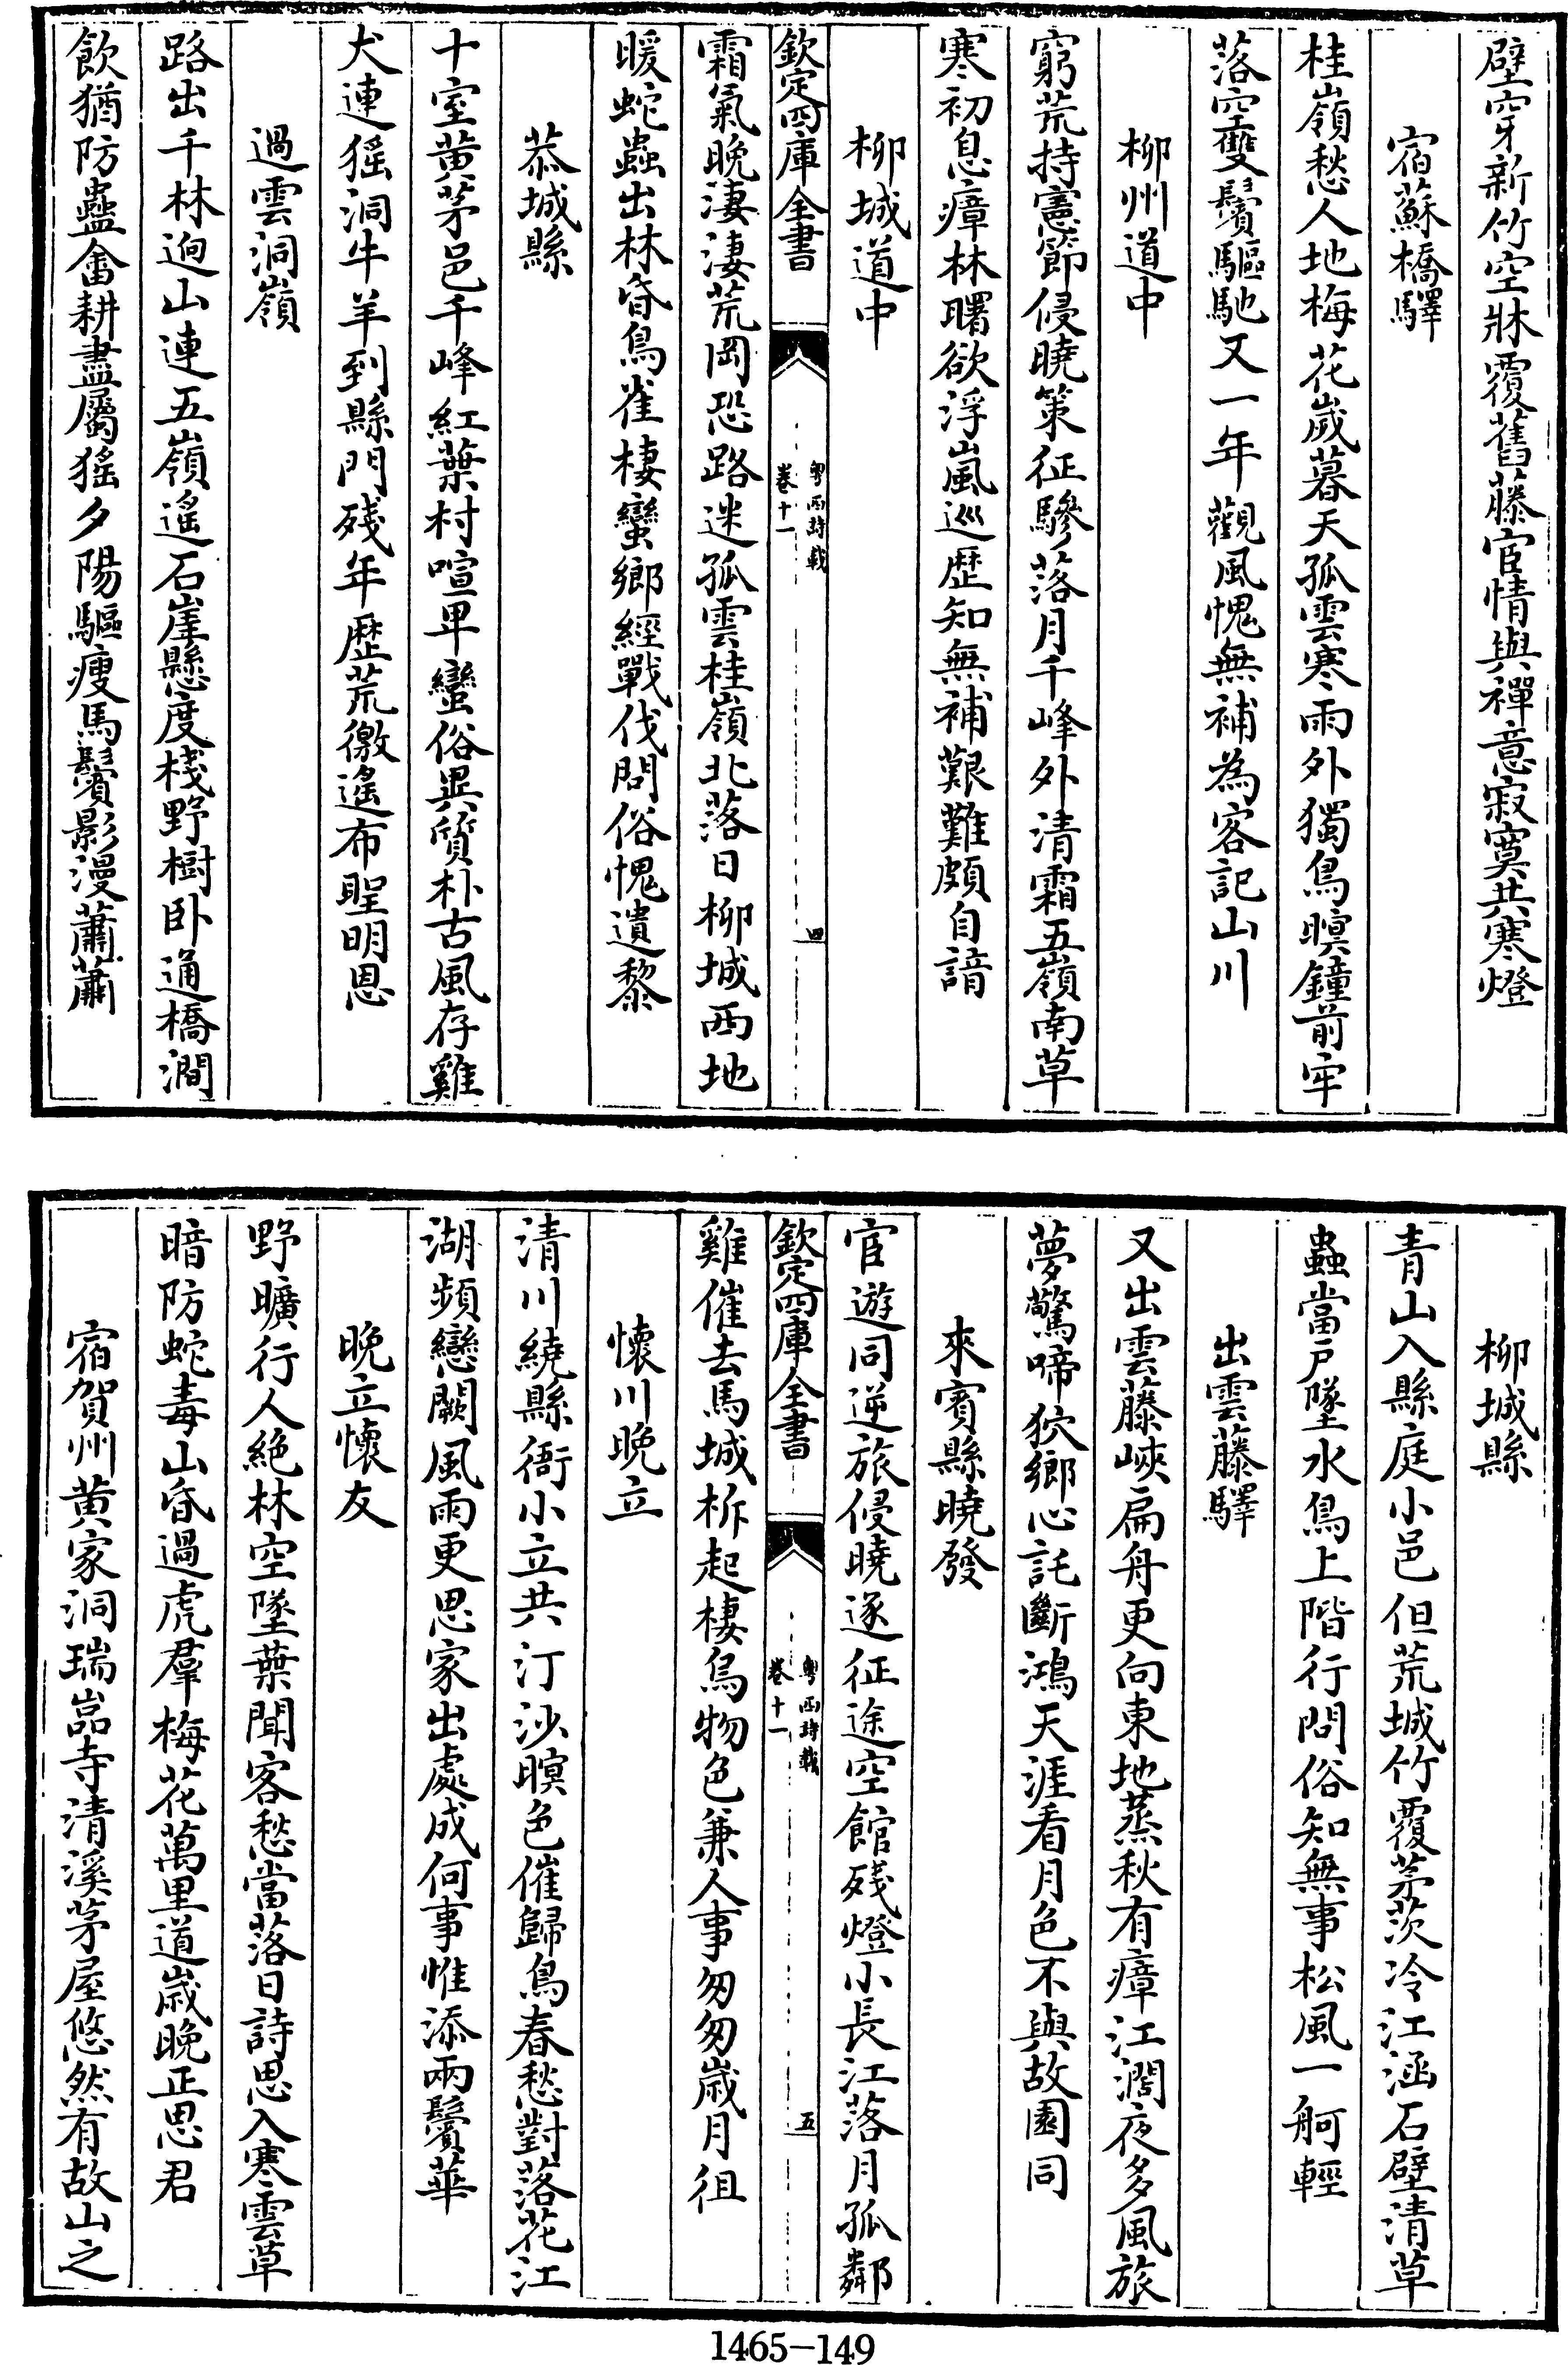 壁穿新竹空牀覆舊藤宦情與禪意寂寞共寒燈
宿蘇橋驛
桂嶺愁人地梅花歲暮天孤雲寒雨外獨鳥暝鐘前牢
落空雙鬢驅馳又一年觀風愧無補為客記山川
柳州道中
窮荒持憲節侵曉策征驂落月千峰外清霜五嶺南草
寒初息瘴林曙欲浮嵐巡歷知無補艱難頗自諳
柳城道中
欽定四庫全書
粵西詩載
卷十一
四
霜氣晚淒淒荒岡恐路迷孤雲桂嶺北落日柳城西地
暖蛇蟲出林昏鳥雀棲蠻鄉經戰伐問俗愧遺黎
恭城縣
十室黃茅邑千峰紅葉村喧卑蠻俗異質朴古風存雞
犬連猺洞牛羊到縣門殘年歷荒徼遙布聖明恩
過雲洞嶺
路出千林逈山連五嶺遙石崖懸度棧野樹卧通橋澗
飲猶防蠱畬耕盡屬猺夕陽驅瘦馬鬢影漫蕭蕭
柳城縣
青山入縣庭小邑但荒城竹覆茅茨冷江涵石壁清草
蟲當戶墜水鳥上階行問俗知無事松風一舸輕
出雲藤驛
又出雲藤峽扁舟更向東地蒸秋有瘴江濶夜多風旅
夢驚啼狖鄉心託斷鴻天涯看月色不與故園同
來賓縣曉發
宦遊同逆旅侵曉逐征途空館殘燈小長江落月孤鄰
欽定四庫全書
粵西詩載
卷十一
五
雞催去馬城柝起棲烏物色兼人事匆匆歲月徂
懷川晚立
清川繞縣衙小立共汀沙暝色催歸鳥春愁對落花江
湖頻戀闕風雨更思家出處成何事惟添兩鬢華
晚立懷友
野曠行人絕林空墜葉聞客愁當落日詩思入寒雲草
暗防蛇毒山昏過虎羣梅花萬里道歲晚正思君
宿賀州黃家洞瑞嵓寺清溪茅屋悠然有故山之
1465-149